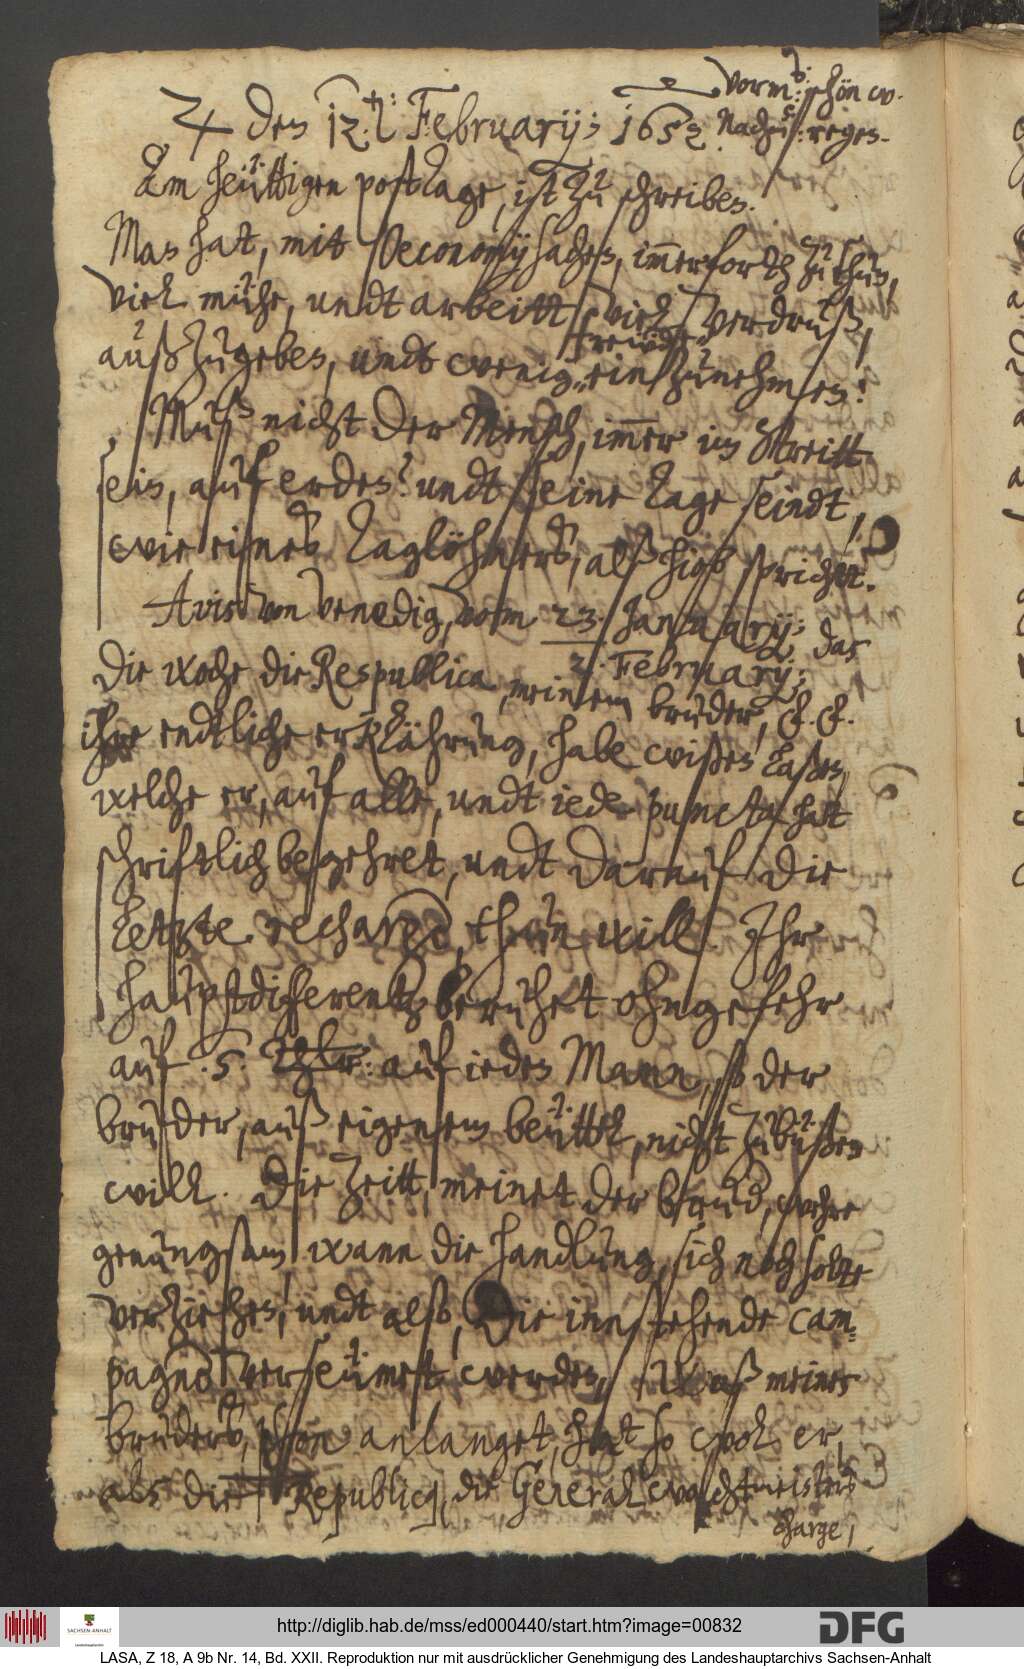 ♃ den 12.t: Februarij; 1653. Vorm: schön w.
Nachm: regen.
Am heüttigen postTage, ist zu schreiben.
Man hat, mit Oeconomysachen, immerforth zu thun,
viel mühe, undt arbeitt, viel verdruß,
außzugeben, undt wenig freüde einzunehmen!
Muß nicht der Mensch, immer im Streitt
sein, auf erden? undt seine Tage seindt,
wie eines Taglöhners, alß Hiob spricht.
Avis von Venedig, vom 23. January; das
2. February;
die woche die Respublica, meinem bruder, F. F.
ihre endtliche erklährung, habe wißen laßen,
welche er, auf alle, undt iede puncta hatt
schriftlich begehret, undt darauf die
letzte recharge, thun will. Ihr
hauptdifferentz beruhet ohngefehr
auf .5. Thlr: auf ieden Mann, so der
bruder, auß eigenem beüttel, nicht zubüßen
will. Die Zeitt, meinet der bruder, wehre
genungsam, wann die handlung sich noch solte
verziehen, undt also, die innstehende cam-
pagne verseümet werden, Waß meines
bruders, person anlanget, hat so wol er,
als die Republicq, die General wachtmeisters
charge,
http://diglib.hab.de/mss/ed000440/start.htm?image=00832
SACHSEN-ANHALT
DFG
LASA, Z 18, A 9b Nr. 14, Bd. XXII. Reproduktion nur mit ausdrücklicher Genehmigung des Landeshauptarchivs Sachsen-Anhalt